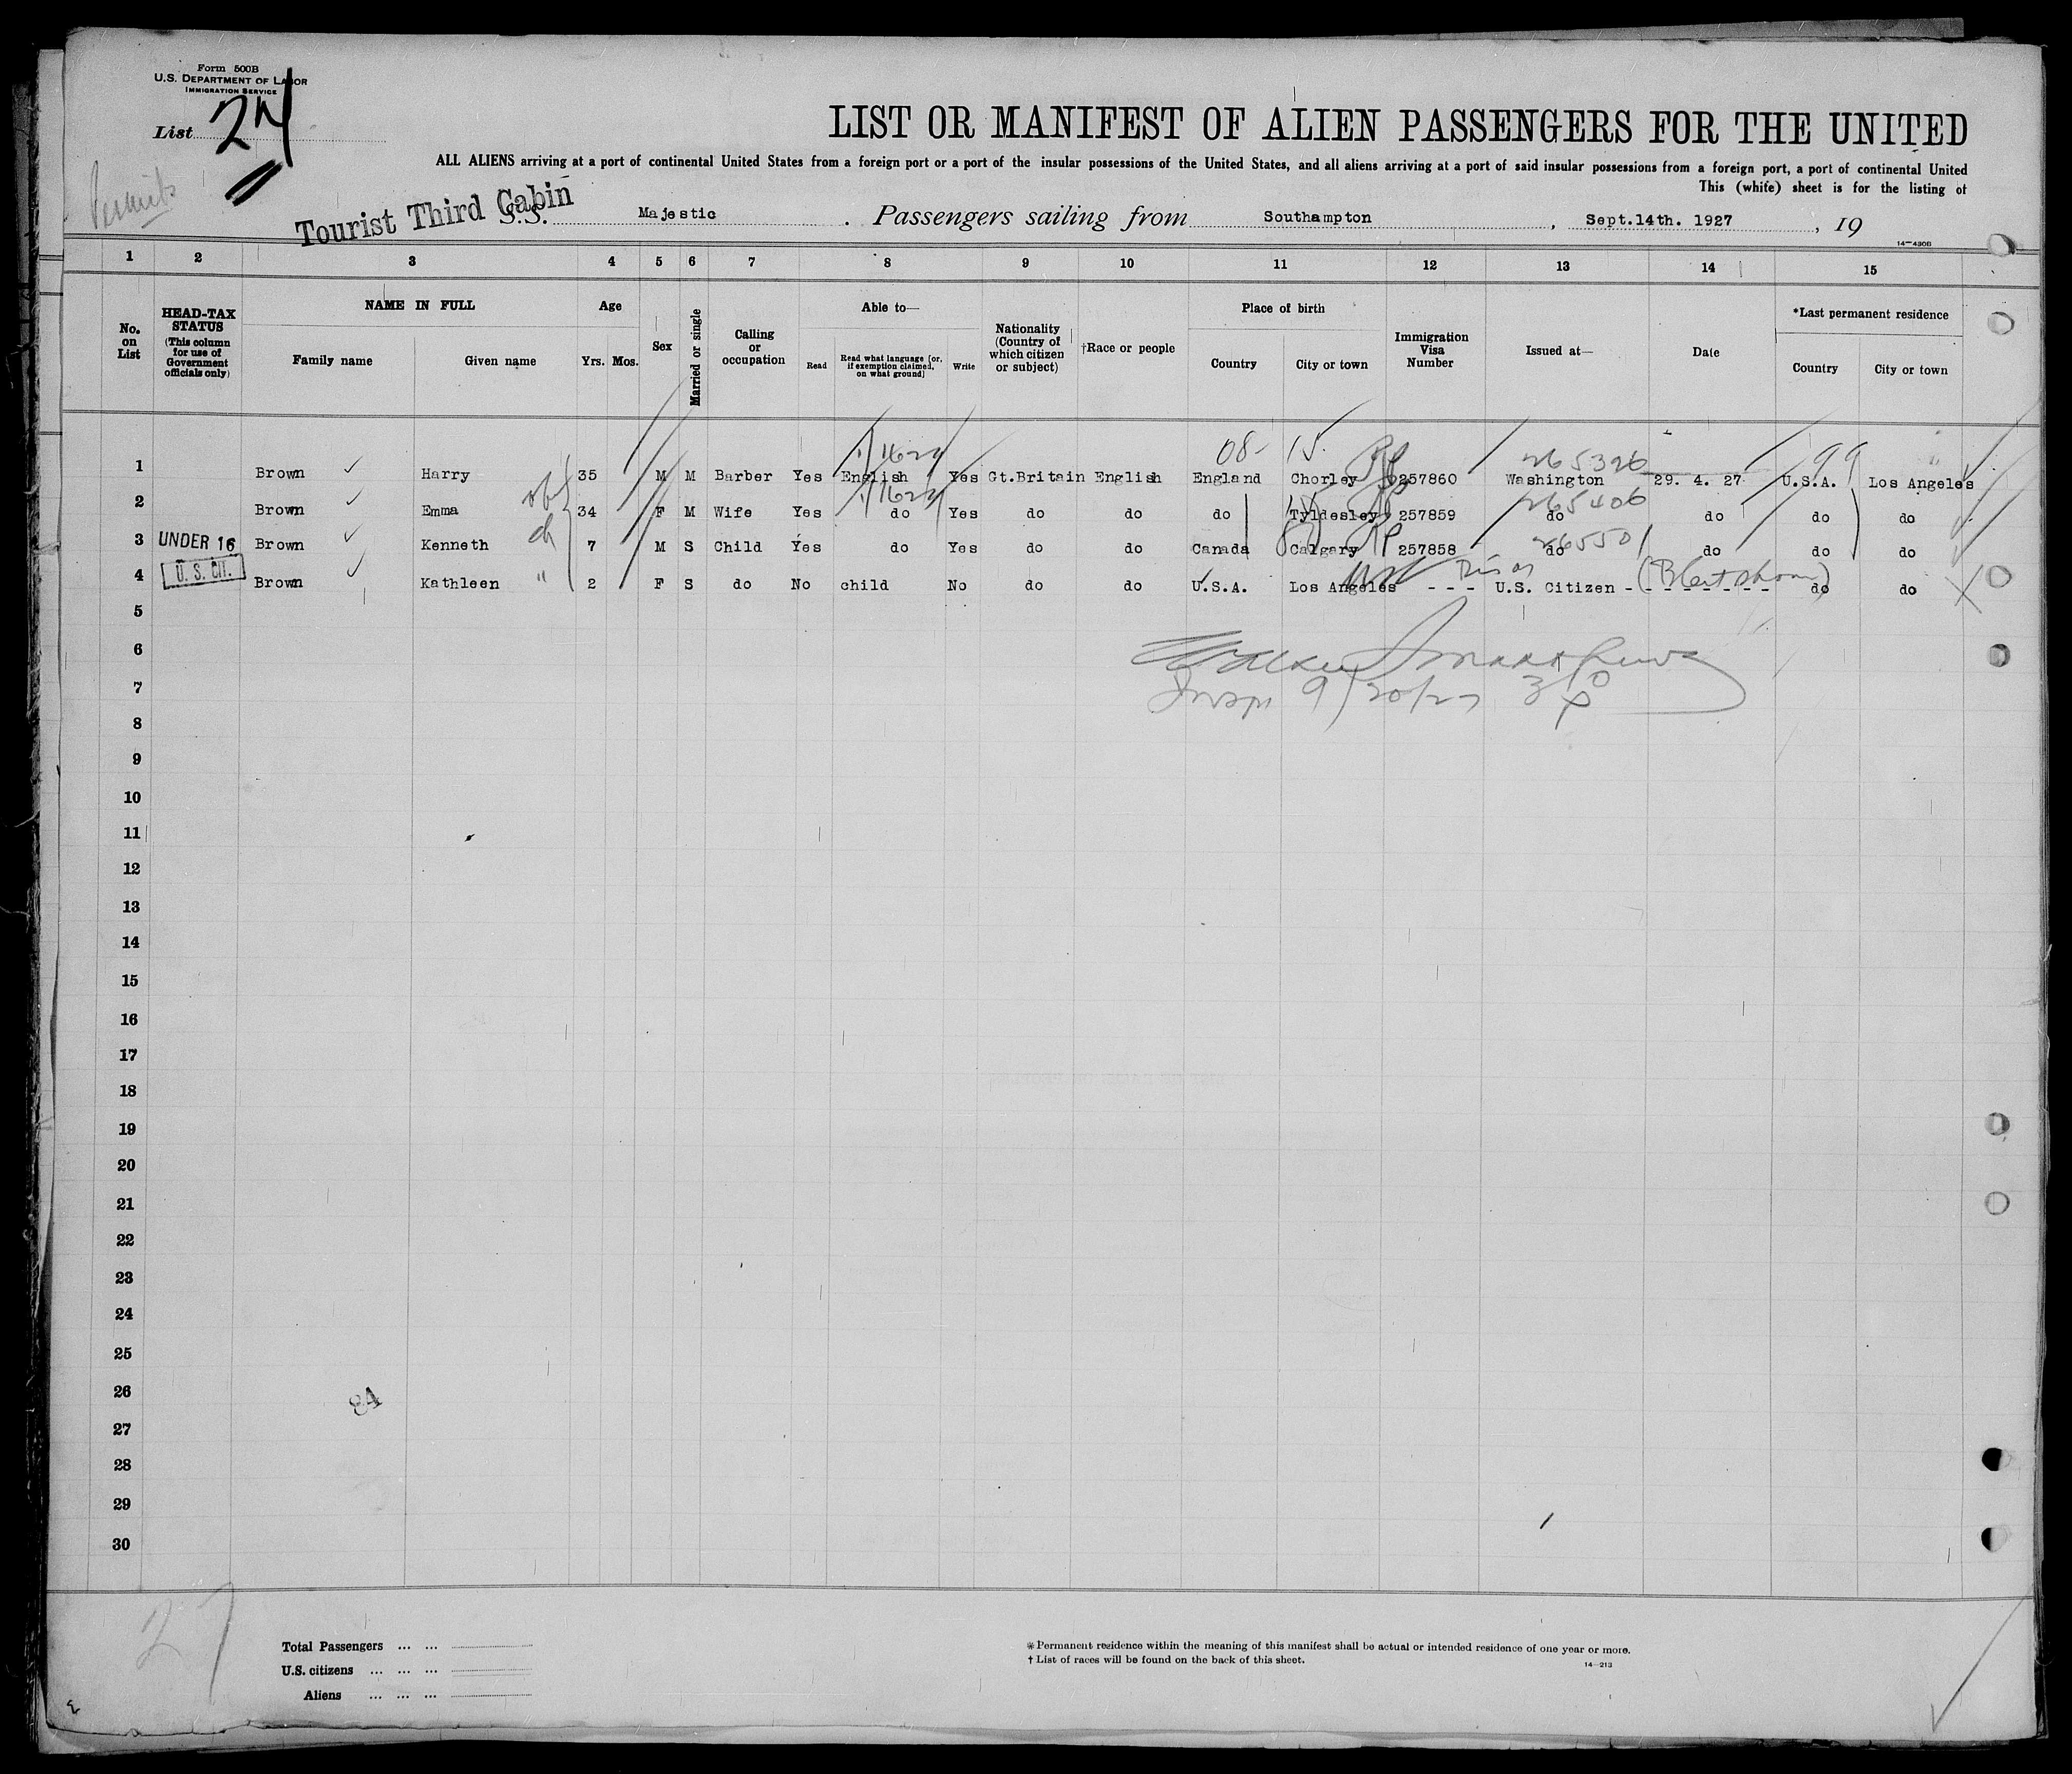 Form 500B
U.S. DEPARTMENT OF LABOR
IMMIGRATION SERVICE
List 24
LIST OR MANIFEST OF ALIEN PASSENGERS FOR THE UNITED
ALL ALIENS arriving at a port of continental United States from a foreign port or a port of the insular possessions of the United States, and all aliens arriving at a port of said insular possessions from a foreign port, a port of continental United
This (white) sheet is for the listing of
Permits
Tourist Third Cabin
S.S. Majestic. Passengers sailing from Southampton, Sept.14th. 1927, 19
14—430B
1 2 3 4 5 6 7 8 9 10 11 12 13 14 15
No. on List
HEAD-TAX STATUS (This column for use of Government officials only)
NAME IN FULL
Family name Given name
Age
Yrs. Mos.
Sex
Married or single
Calling or occupation
Able to—
Read
Read what language [or, if exemption claimed, on what ground]
Write
Nationality (Country of which citizen or subject)
†Race or people
Place of birth
Country City or town
Immigration Visa Number
Issued at—
Date
*Last permanent residence
Country City or town
1/1622 08- 15. 265326 99
1 Brown Harry 35 M M Barber Yes English Yes Gt.Britain English England Chorley 257860 Washington 29. 4. 27 U.S.A. Los Angeles
1/1622 265406
2 Brown Emma 34 F M Wife Yes do Yes do do do Tyldesley 257859 do do do do
265501
3 UNDER 16 Brown Kenneth ch 7 M S Child Yes do Yes do do Canada Calgary 257858 do do do do
4 U.S. CIT. Brown Kathleen " 2 F S do No child No do do U.S.A. Los Angeles - - - U.S. Citizen - - - - - - - - do do
5
6
7 Insp 9/20/27
8
9
10
11
12
13
14
15
16
17
18
19
20
21
22
23
24
25
26
84
27
28
29
30
27
Total Passengers ... ...
U.S. citizens ... ... ...
Aliens ... ... ...
* Permanent residence within the meaning of this manifest shall be actual or intended residence of one year or more.
† List of races will be found on the back of this sheet.
14—213